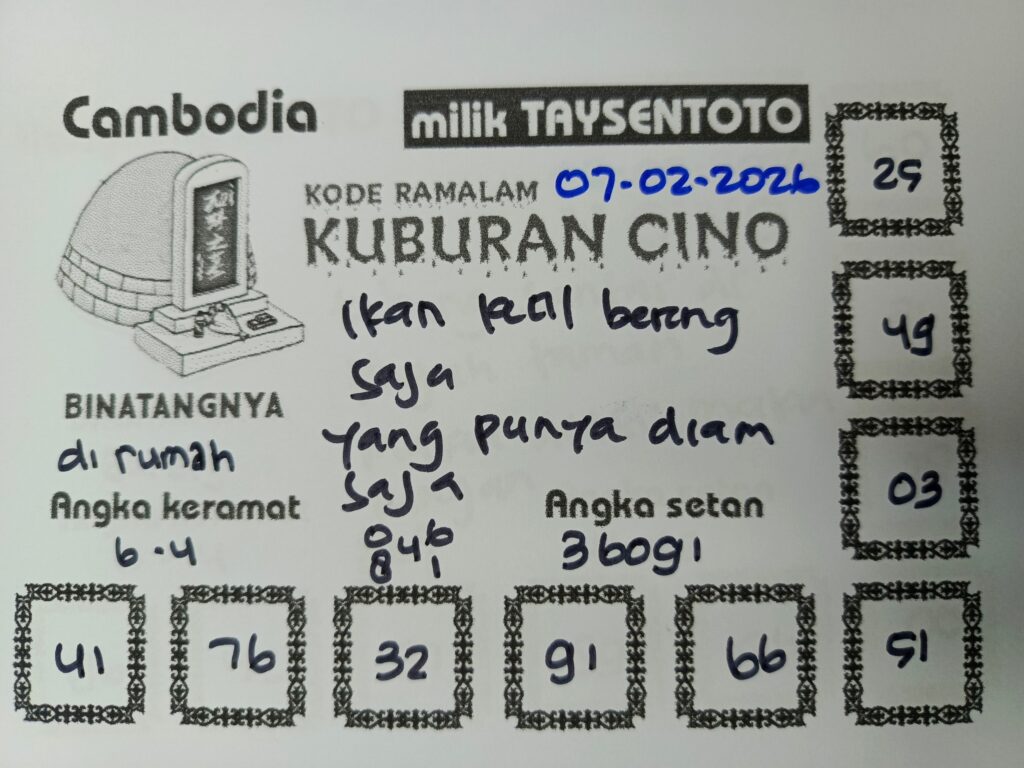 Cambodia
milik TAYSENTOTO
KODE RAMALAM 07-02-2026
KUBURAN CINO
25
49
03
51
Ikan kecil bereng
saja
yang punya diam
saja
BINATANGNYA
di rumah
Angka keramat
6-4
0 6
8 4 1
Angka setan
36091
41
76
32
91
66